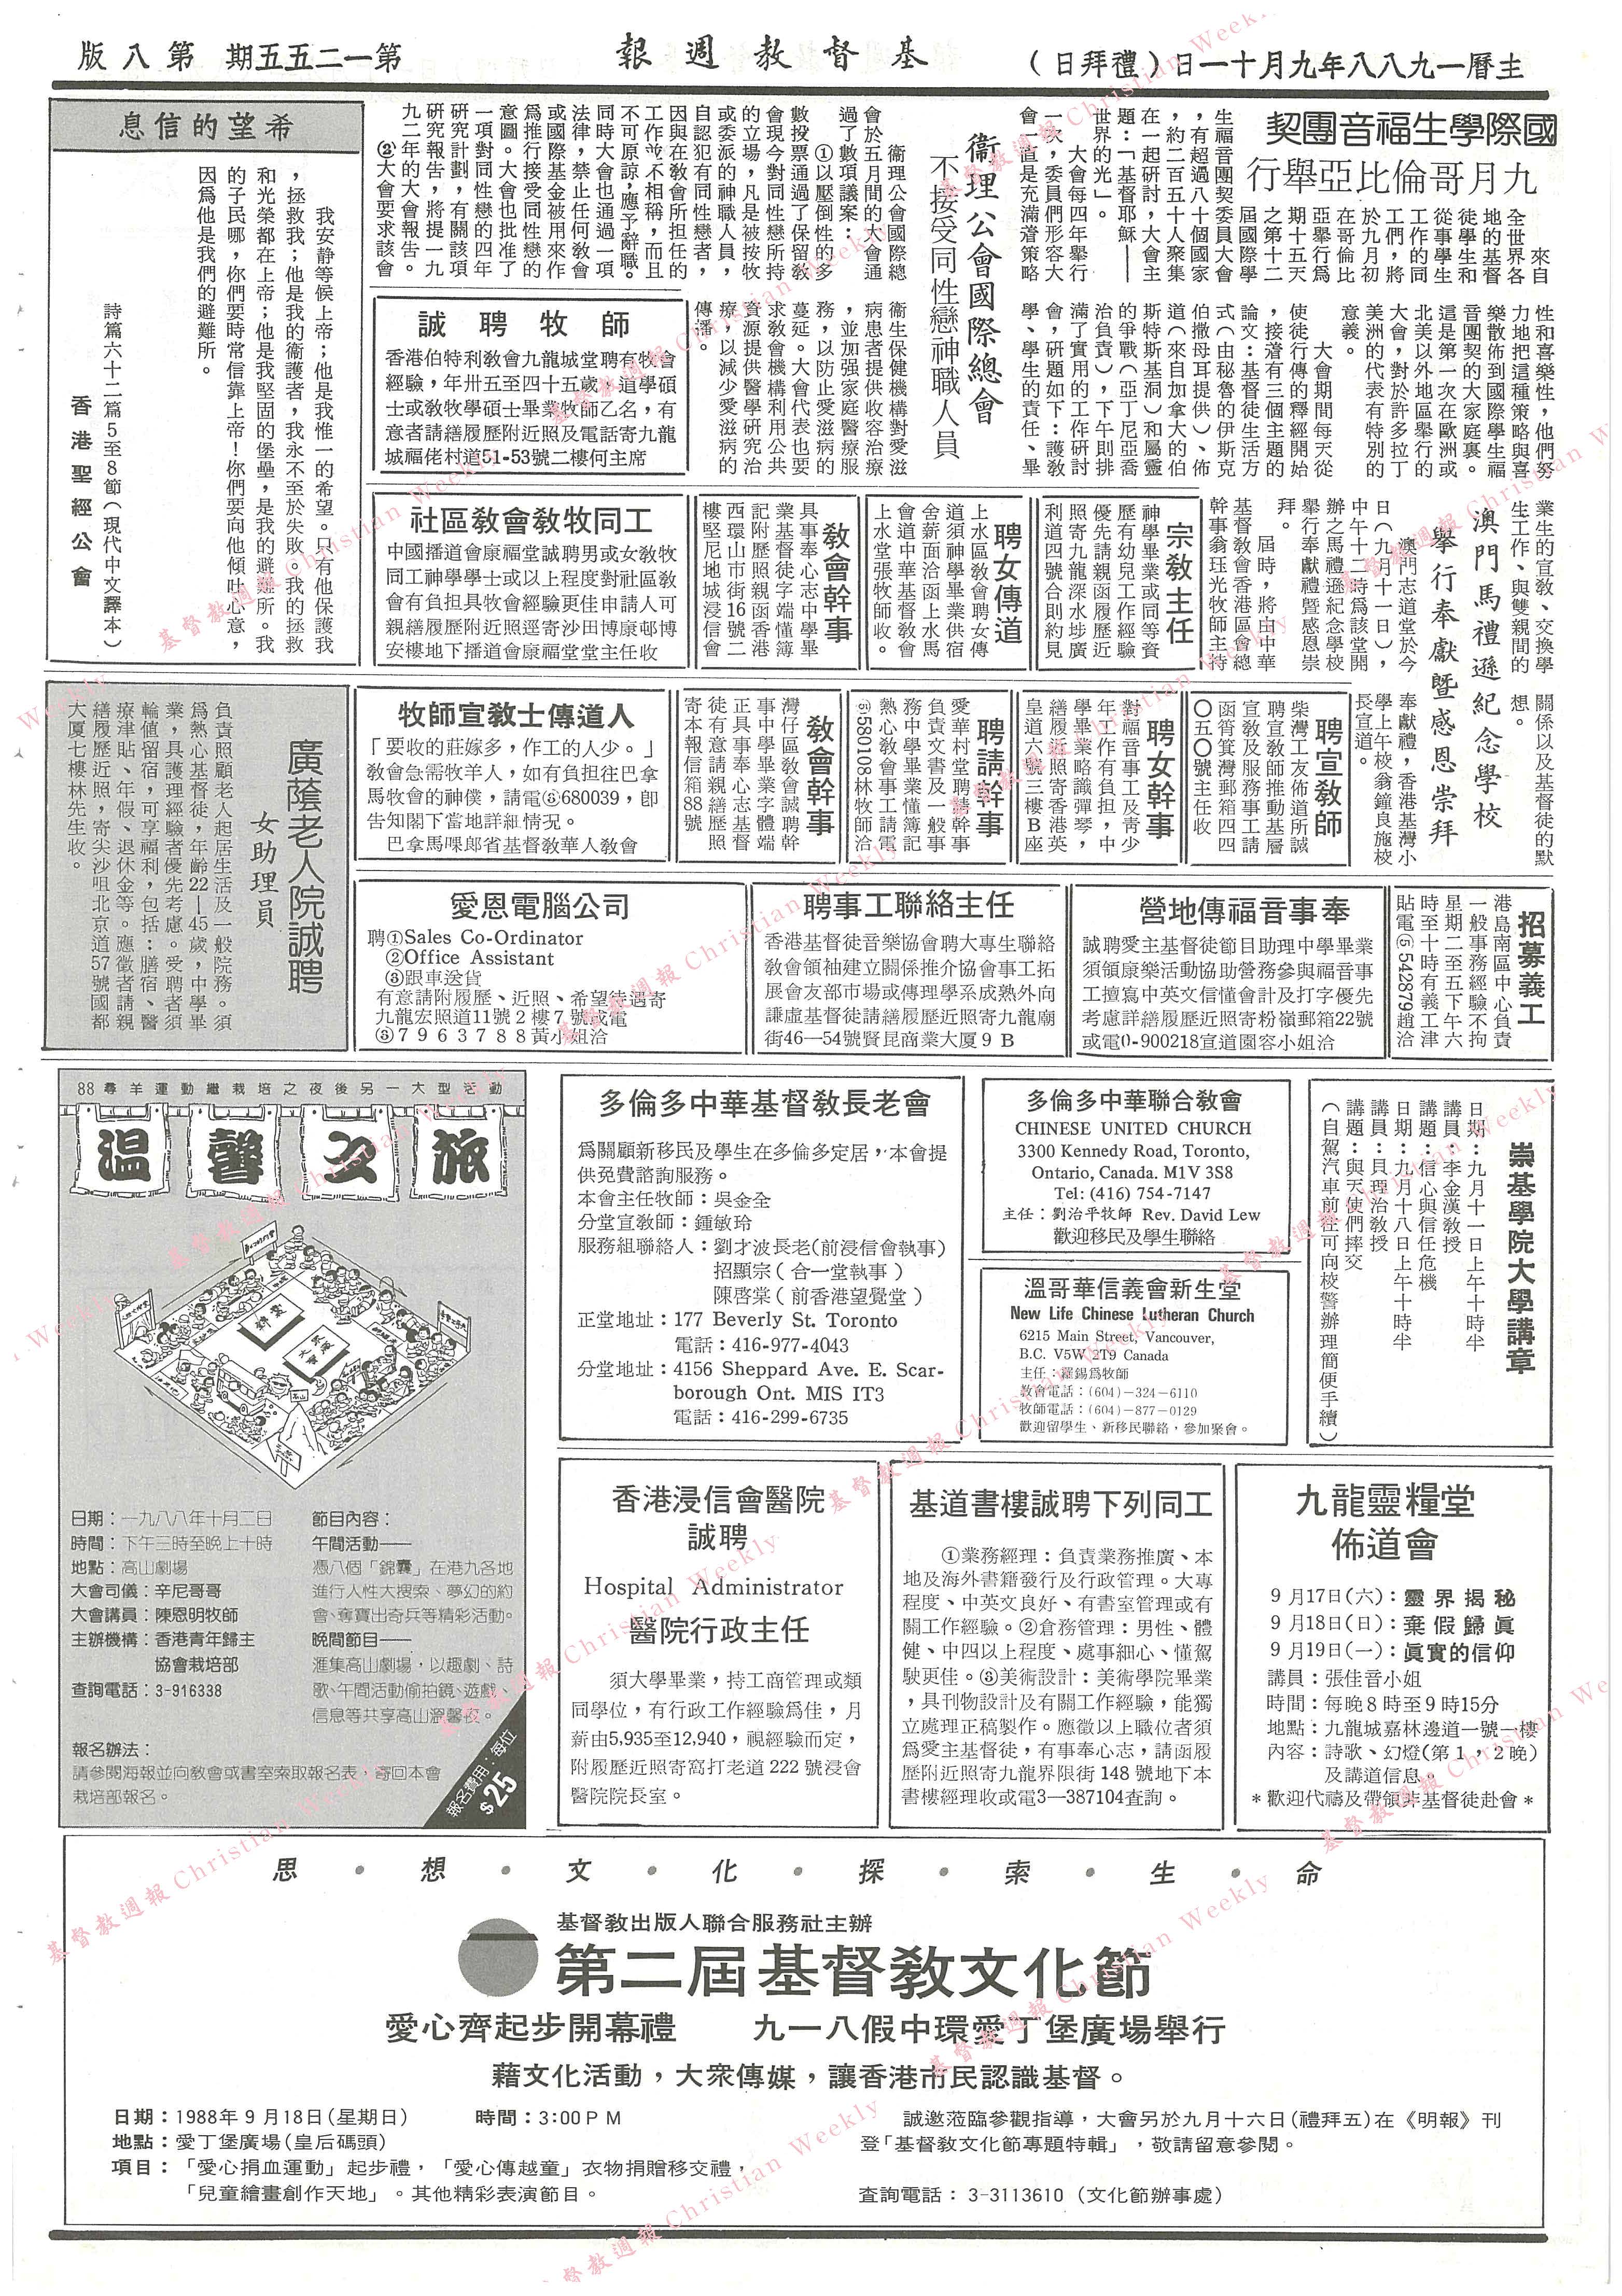 主曆一九八八年九月十一日（禮拜日）
基督教週報
第一二五五期　第八版
國際學生福音團契
九月哥倫比亞舉行
來自
全世界各
地的基督
徒學生和
從事學生
工作的同
工們，將
於九月初
在哥倫比
亞舉行為
期十五天
之第十二
屆國際學
生福音團契委員大會
，有超過八十個國家
，約二百五十人聚集
在一起研討，大會主
題：「基督耶穌——
世界的光」。
大會每四年舉行
一次，委員們形容大
會一直是充滿着策略
性和喜樂性，他們努
力地把這種策略與喜
樂散佈到國際學生福
音團契的大家庭裏。
這是第一次在歐洲或
北美以外地區舉行的
大會，對於許多拉丁
美洲的代表有特別的
意義。
大會期間每天從
使徒行傳的釋經開始
，接着有三個主題的
論文：基督徒生活方
式（由秘魯的伊斯克
伯撒母耳提供）、佈
道（來自加拿大的伯
斯特基洞）和屬靈
的爭戰（亞丁尼亞喬
治負責），下午則排
滿了實用的工作研討
會，研題如下：護教
學、學生的責任、畢
業生的宣教、交換學
生工作、與雙親間的
關係以及基督徒的默
想。
衞理公會國際總會
不接受同性戀神職人員
衞理公會國際總
會於五月間的大會通
過了數項議案：
①以壓倒性的多
數投票通過了保留教
會現今對同性戀所持
的立場，凡是被按牧
或委派的神職人員，
自認犯有同性戀者，
因與在教會所担任的
工作並不相稱，而且
不可原諒，應予辭職。
同時大會也通過一項
法律，禁止任何教會
或國際基金被用來作
為推行接受同性戀的
意圖。大會也批准了
一項對同性戀的四年
研究計劃，有關該項
研究報告，將提一九
九二年的大會報告。
②大會要求該會
衞生保健機構對愛滋
病患者提供收容治療
，並加强家庭醫療服
務，以防止愛滋病的
蔓延。大會代表也要
求教會機構利用公共
資源提供醫學研究治
療，以減少愛滋病的
傳播。
希望的信息
我安靜等候上帝；他是我惟一的希望。只有他保護我
，拯救我；他是我的衞護者，我永不至於失敗。我的拯救
和光榮都在上帝；他是我堅固的堡壘，是我的避難所。我
的子民哪，你們要時常信靠上帝！你們要向他傾吐心意，
因為他是我們的避難所。
詩篇六十二篇5至8節（現代中文譯本）
香港聖經公會
誠聘牧師
香港伯特利教會九龍城堂聘有牧會
經驗，年卅五至四十五歲，道學碩
士或教牧學碩士畢業牧師乙名，有
意者請繕履歷附近照及電話寄九龍
城福佬村道51-53號二樓何主席
澳門馬禮遜紀念學校
舉行奉獻暨感恩崇拜
澳門志道堂於今
日（九月十一日），
中午十二時為該堂開
辦之馬禮遜紀念學校
舉行奉獻禮暨感恩崇
拜。
屆時，將由中華
基督教會香港區會總
幹事翁珏光牧師主持
奉獻禮，香港基灣小
學上午校翁鐘良施校
長宣道。
宗教主任
神學畢業或同等資
歷有幼兒工作經驗
優先請親函履歷近
照寄九龍深水埗廣
利道四號合則約見
聘女傳道
上水區教會聘女傳
道須神學畢業供宿
舍薪面洽函上水馬
會道中華基督教會
上水堂張牧師收。
教會幹事
具事奉心志中學畢
業基督徒字端懂簿
記附歷照親函香港
西環山市街16號二
樓堅尼地城浸信會
社區教會教牧同工
中國播道會康福堂誠聘男或女教牧
同工神學學士或以上程度對社區教
會有負担具牧會經驗更佳申請人可
親繕履歷附近照逕寄沙田博康邨博
安樓地下播道會康福堂堂主任收
聘宣教師
柴灣工友佈道所誠
聘宣教師推動基層
宣教及服務事工請
函筲箕灣郵箱四四
〇五〇號主任收
聘女幹事
對福音事工及青少
年工作有負担，中
學畢業略識彈琴，
繕履歷照寄香港英
皇道六號三樓B座
聘請幹事
愛華村堂聘請幹事
負責文書及一般事
務中學畢業懂簿記
熱心教會事工請電
⑤580108林牧師洽
教會幹事
灣仔區教會誠聘幹
事中學畢業字體端
正具事奉心志基督
徒有意請親繕歷照
寄本報信箱88號
牧師宣教士傳道人
「要收的莊嫁多，作工的人少。」
教會急需牧羊人，如有負担往巴拿
馬牧會的神僕，請電⑧680039，卽
告知閣下當地詳細情况。
巴拿馬啯郞省基督教華人教會
廣蔭老人院誠聘
女助理員
負責照顧老人起居生活及一般院務。須
為熱心基督徒，年齡22—45歲，中學畢
業，具護理經驗者優先考慮。受聘者須
輪值留宿，可享福利，包括：膳宿、醫
療津貼、年假、退休金等。應徵者請親
繕履歷近照，寄尖沙咀北京道57號國都
大厦七樓林先生收。
招募義工
港島南區中心負責
一般事務經驗不拘
星期二至五下午六
時至十時有義工津
貼電⑤542879趙洽
營地傳福音事奉
誠聘愛主基督徒節目助理中學畢業
須領康樂活動協助營務參與福音事
工擅寫中英文信懂會計及打字優先
考慮詳繕履歷近照寄粉嶺郵箱22號
或電0-900218宣道園容小姐洽
聘事工聯絡主任
香港基督徒音樂協會聘大專生聯絡
教會領袖建立關係推介協會事工拓
展會友部市場或傳理學系成熟外向
謙虛基督徒請繕履歷近照寄九龍廟
街46—54號賢昆商業大厦9B
愛恩電腦公司
聘①Sales Co-Ordinator
②Office Assistant
③跟車送貨
有意請附履歷、近照、希望待遇寄
九龍宏照道11號2樓7號或電
③7963788黃小姐洽
崇基學院大學講章
日期：九月十一日上午十時半
講員：李金漢教授
講題：信心與信任危機
日期：九月十八日上午十時半
講員：貝理治教授
講題：與天使們摔交
（自駕汽車前往可向校警辦理簡便手續）
多倫多中華聯合教會
CHINESE UNITED CHURCH
3300 Kennedy Road, Toronto,
Ontario, Canada. M1V 3S8
Tel: (416) 754-7147
主任：劉治平牧師 Rev. David Lew
歡迎移民及學生聯絡
溫哥華信義會新生堂
New Life Chinese Lutheran Church
6215 Main Street, Vancouver,
B.C. V5W 2T9 Canada
主任：羅錫為牧師
教會電話：(604)－324－6110
牧師電話：(604)－877－0129
歡迎留學生、新移民聯絡，參加聚會。
多倫多中華基督教長老會
為關顧新移民及學生在多倫多定居，本會提
供免費諮詢服務。
本會主任牧師：吳金全
分堂宣教師：鍾敏玲
服務組聯絡人：劉才波長老(前浸信會執事)
招顯宗（合一堂執事）
陳啓棠（前香港望覺堂）
正堂地址：177 Beverly St. Toronto
電話：416-977-4043
分堂地址：4156 Sheppard Ave. E. Scar-
borough Ont. MIS IT3
電話：416-299-6735
88尋羊運動繼栽培之夜後另一大型活動
溫馨之旅
日期：一九八八年十月二日
時間：下午三時至晚上十時
地點：高山劇場
大會司儀：辛尼哥哥
大會講員：陳恩明牧師
主辦機構：香港青年歸主
協會栽培部
查詢電話：3-916338
節目內容：
午間活動——
憑八個「錦囊」在港九各地
進行人性大搜索、夢幻的約
會、奪寶出奇兵等精彩活動。
晚間節目——
滙集高山劇場，以趣劇、詩
歌、午間活動偷拍鏡、遊戲、
信息等共享高山溫馨夜。
報名辦法：
請參閱海報並向教會或書室索取報名表，寄回本會
栽培部報名。
報名費用：每位
$25
九龍靈糧堂
佈道會
9月17日(六)：靈界揭秘
9月18日(日)：棄假歸眞
9月19日(一)：眞實的信仰
講員：張佳音小姐
時間：每晚8時至9時15分
地點：九龍城嘉林邊道一號一樓
內容：詩歌、幻燈(第1，2晚)
及講道信息。
＊歡迎代禱及帶領非基督徒赴會＊
基道書樓誠聘下列同工
①業務經理：負責業務推廣、本
地及海外書籍發行及行政管理。大專
程度、中英文良好、有書室管理或有
關工作經驗。②倉務管理：男性、體
健、中四以上程度、處事細心、懂駕
駛更佳。③美術設計：美術學院畢業
，具刊物設計及有關工作經驗，能獨
立處理正稿製作。應徵以上職位者須
為愛主基督徒，有事奉心志，請函履
歷附近照寄九龍界限街148號地下本
書樓經理收或電3—387104查詢。
香港浸信會醫院
誠聘
Hospital Administrator
醫院行政主任
須大學畢業，持工商管理或類
同學位，有行政工作經驗為佳，月
薪由5,935至12,940，視經驗而定，
附履歷近照寄窩打老道222號浸會
醫院院長室。
思・想・文・化・探・索・生・命
基督教出版人聯合服務社主辦
第二屆基督教文化節
愛心齊起步開幕禮　九一八假中環愛丁堡廣場舉行
藉文化活動，大眾傳媒，讓香港市民認識基督。
日期：1988年9月18日(星期日)　時間：3:00PM
地點：愛丁堡廣場(皇后碼頭)
項目：「愛心捐血運動」起步禮，「愛心傳越童」衣物捐贈移交禮，
「兒童繪畫創作天地」。其他精彩表演節目。
誠邀蒞臨參觀指導，大會另於九月十六日(禮拜五)在《明報》刊
登「基督教文化節專題特輯」，敬請留意參閱。
查詢電話：3-3113610（文化節辦事處）
基督教週報 Christian Weekly